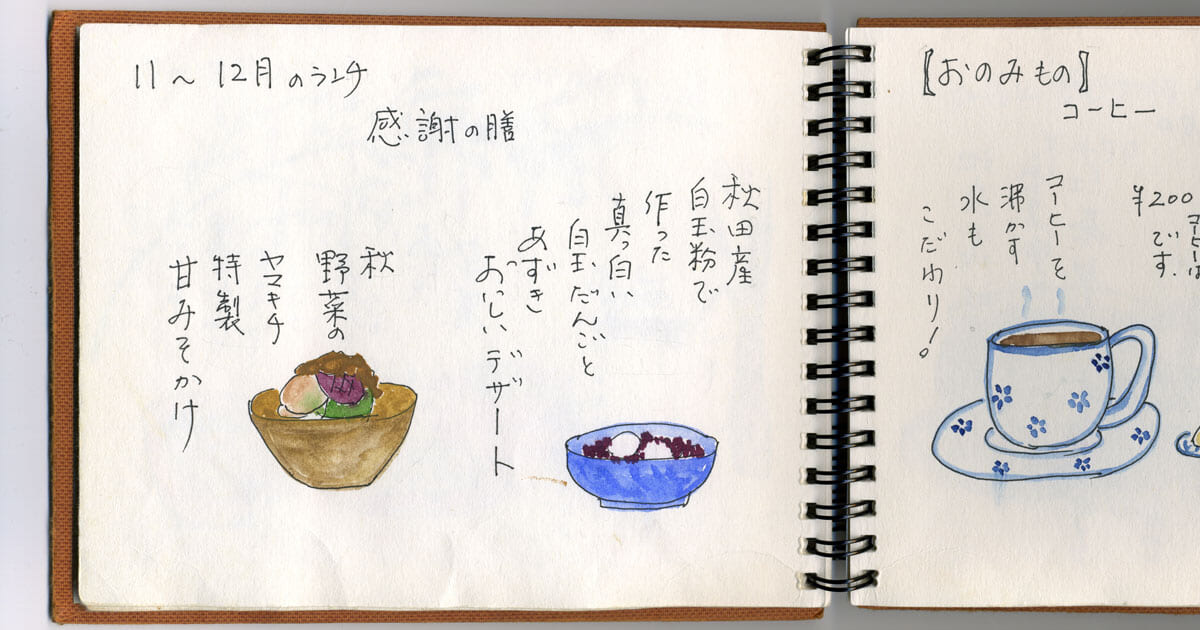 11～12月のランチ
感謝の膳
秋田産
白玉粉で
作った
真っ白い
白玉だんごと
あずき
おいしいデザート
秋
野菜の
ヤマキチ
特製
甘みそかけ
【おのみもの】
コーヒー
¥200
です.
コーヒーを
沸かす
水も
こだわり！。